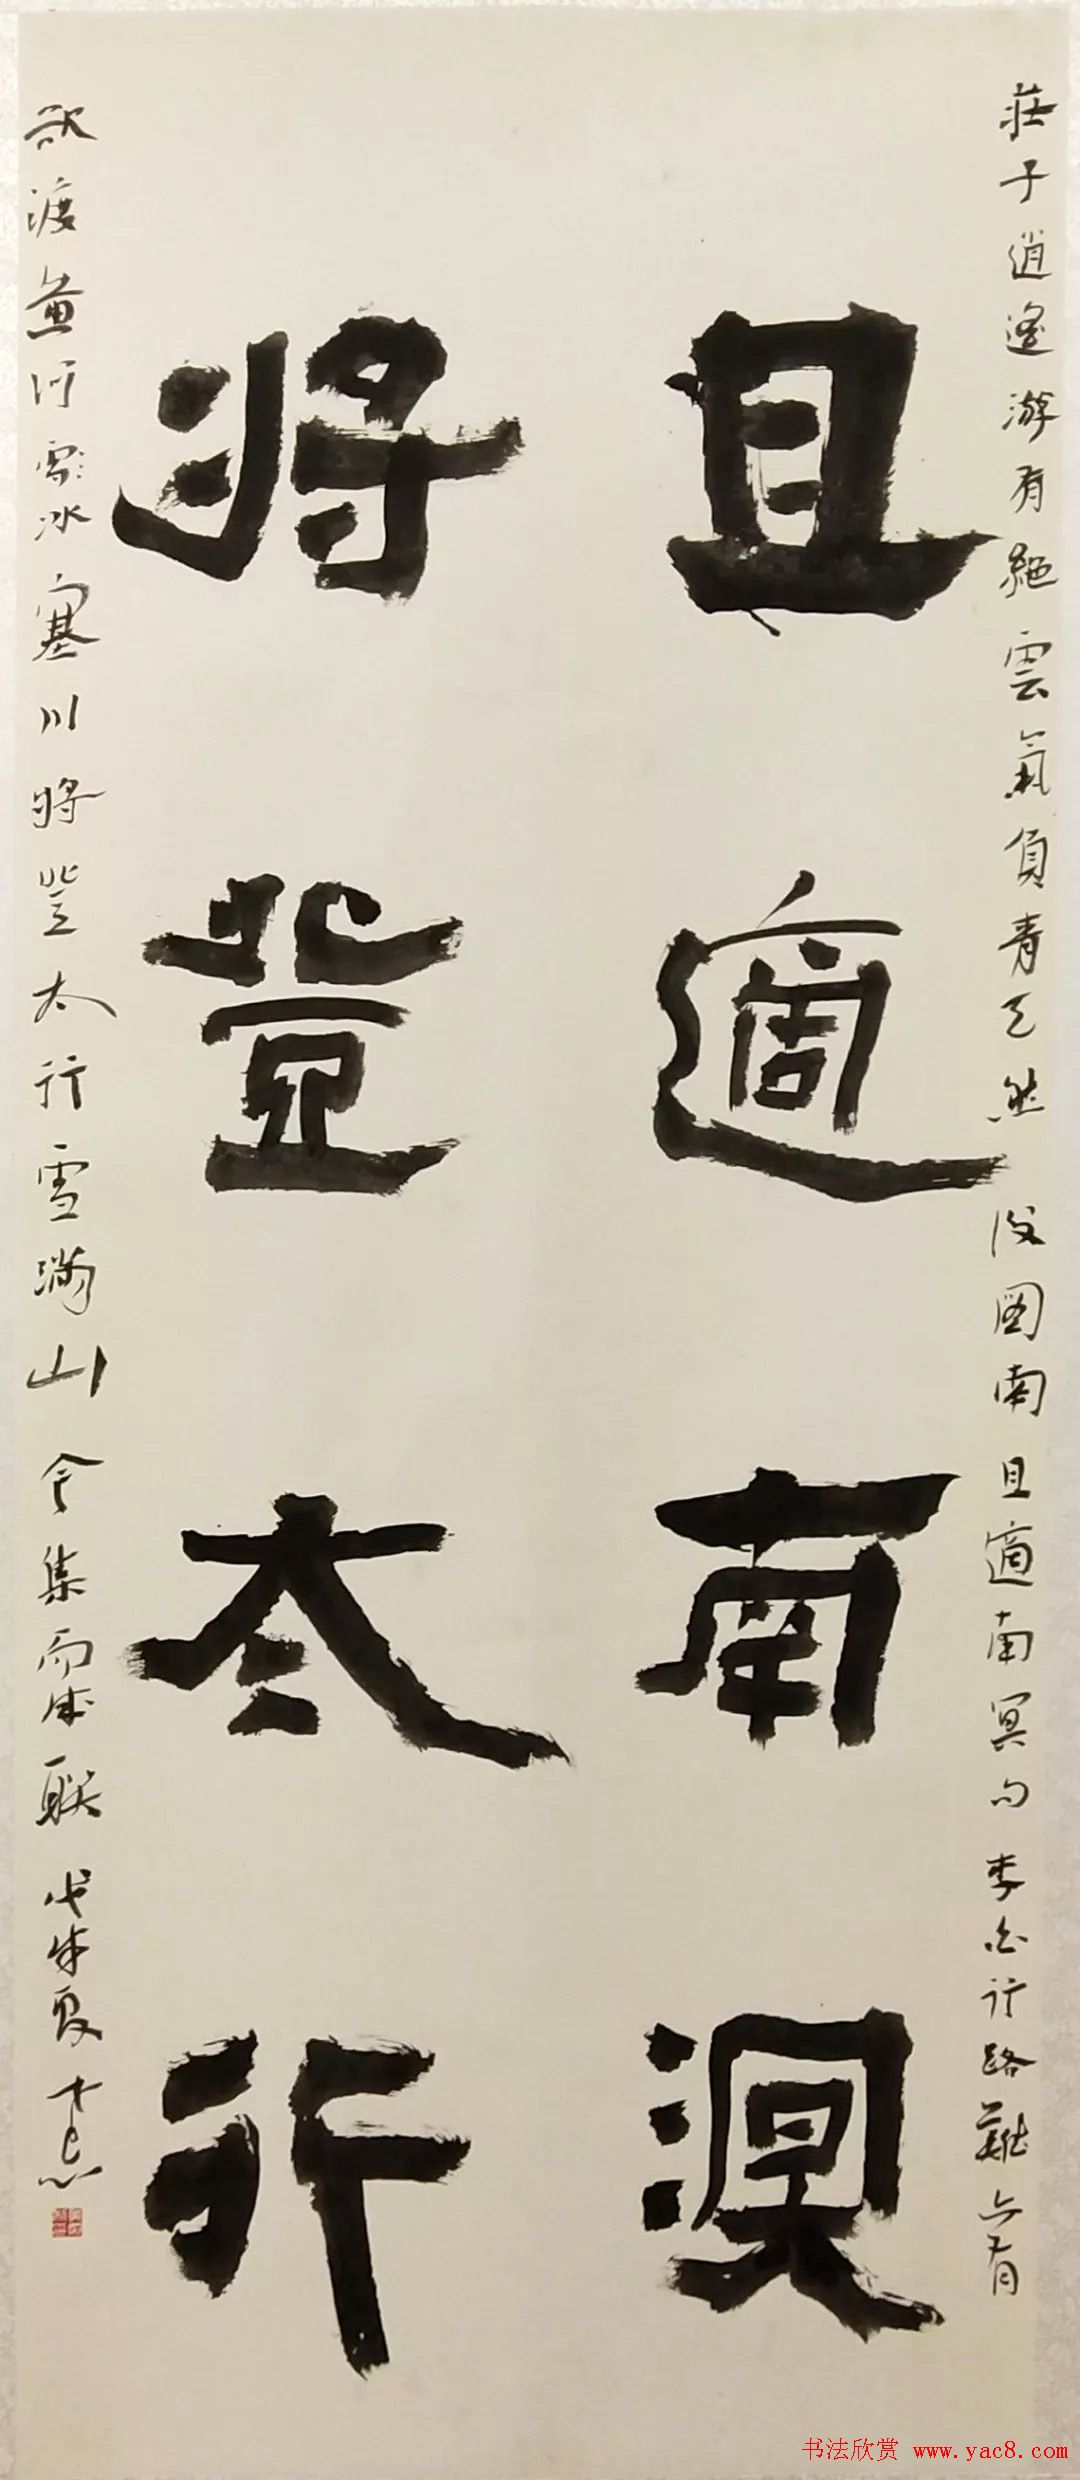 莊子逍遙游有絕雲氣負青天然後圖南且適南冥句李白行路難亦有
且適南溟
將登太行
欲渡黃河冰塞川將登太行雪滿山今集而成聯戊戌夏
书法欣赏 www.yac8.com